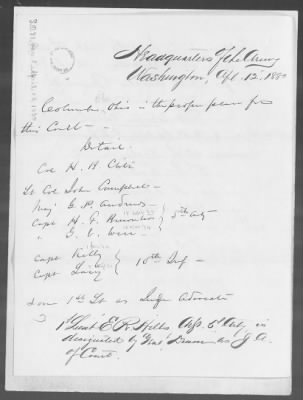 Headquarters of the Army
Washington, Apl. 12. 188
Columbus, Ohio is the proper place for
this Court—
Detail
Col H. B.
Lt Col John Campbell—
Maj G. P. Andrews
Capt H. F. 5th Arty
" G. V. Weir
Capt Kelly
Capt Lacey 10th Inf—
some 1st Lt as Judge Advocate
1st Lieut E. R. Hills Adjt. 5th Arty, is
designated by Genl. Drum as J. A.
of Court.